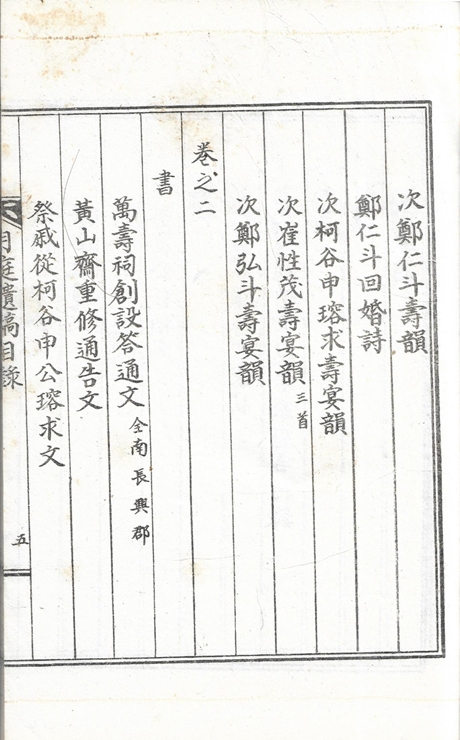 次鄭仁斗壽韻
鄭仁斗回婚詩
次柯谷申瑢求壽宴韻
次崔性茂壽宴韻 三首
次鄭弘斗壽宴韻
卷之二
書
萬壽祠創設答通文 全南長興郡
黃山齋重修通告文
祭戚從柯谷申公瑢求文
月庭遺稿目錄 五